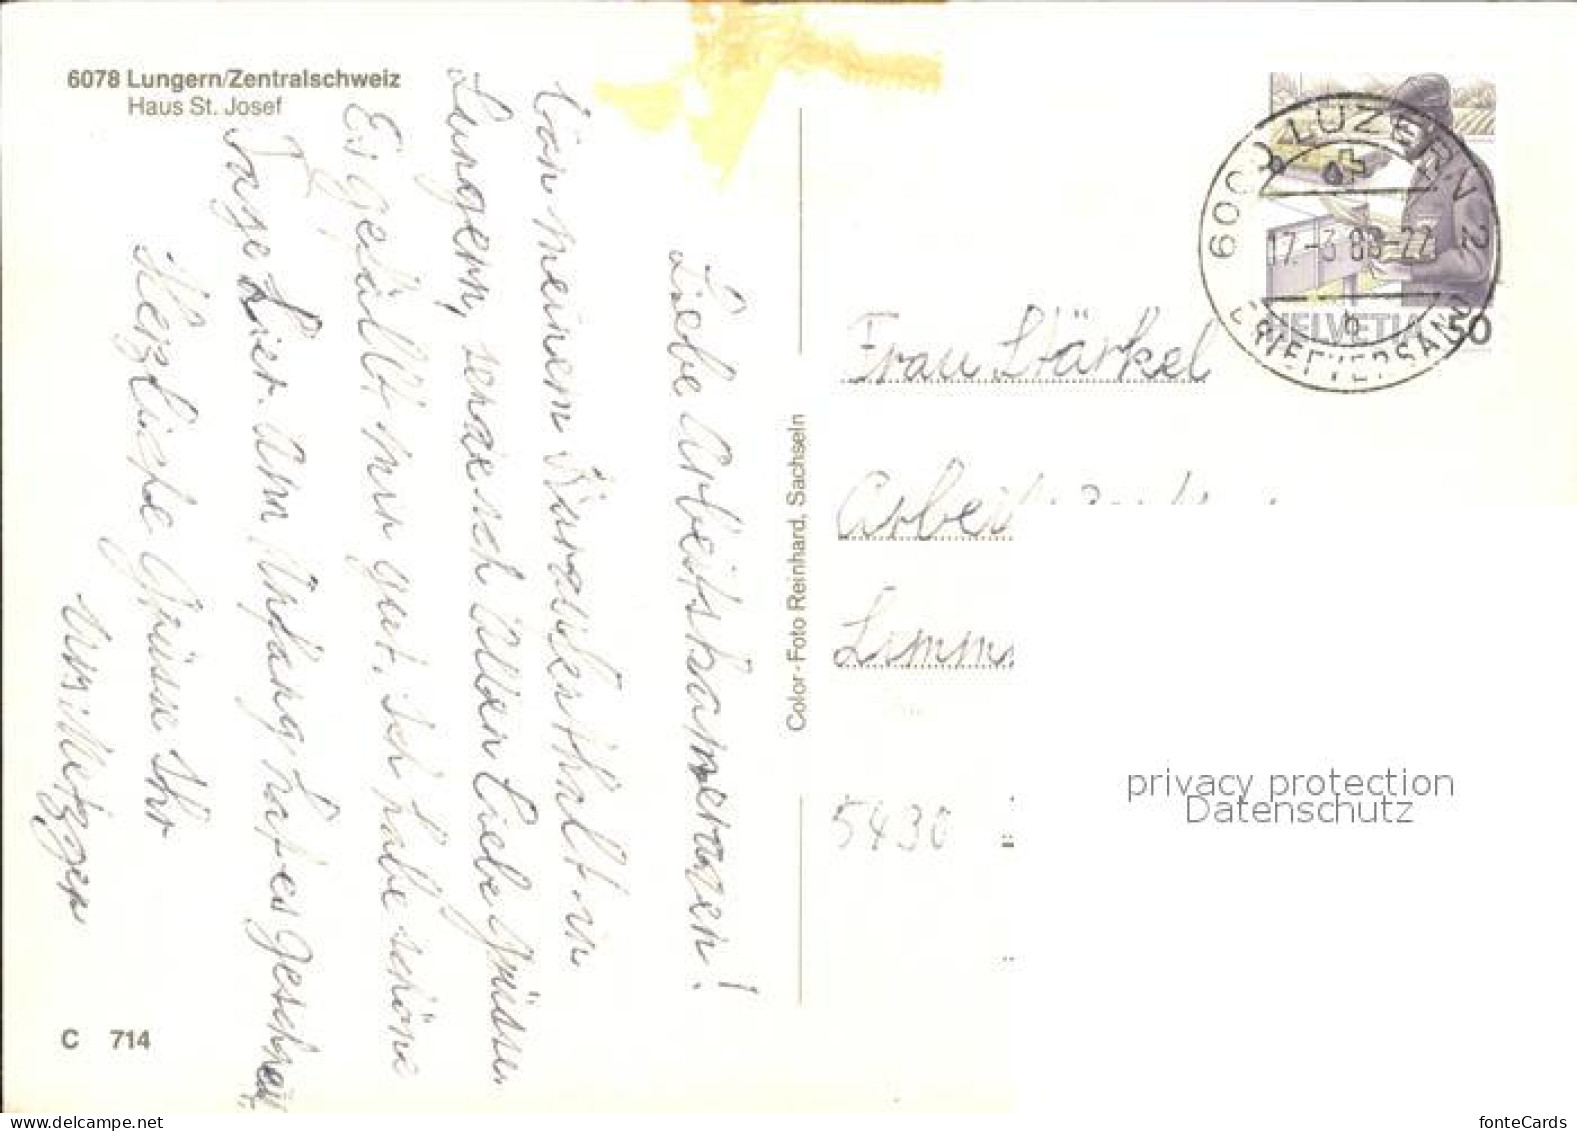 6078 Lungern/Zentralschweiz
Haus St. Josef
Liebe Arbeitskameraden!
Von meinem Kuraufenthalt in
Lungern, sende ich Allen Liebe Grüsse.
Es gefällt mir gut. Ich habe schöne
Tage hier. Am Anfang hat es geschneit
Herzliche Grüsse Ihr
Metzger
C 714
Color-Foto Reinhard, Sachseln
6002 LUZERN 2
17.-3.88-22
b
BRIEFVERSAND
HELVETIA 50
Frau Stärkel
5430
privacy protection
Datenschutz
www.delcampe.net
fonteCards